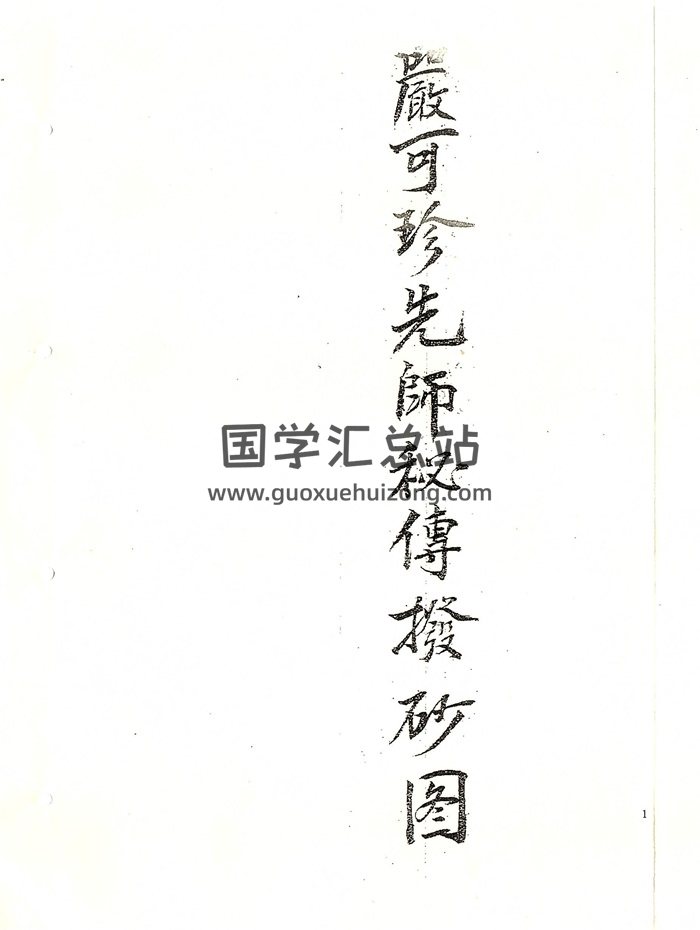 嚴可珍先師秘傳撥砂图
国学汇总站
www.guoxuehuizong.com
1